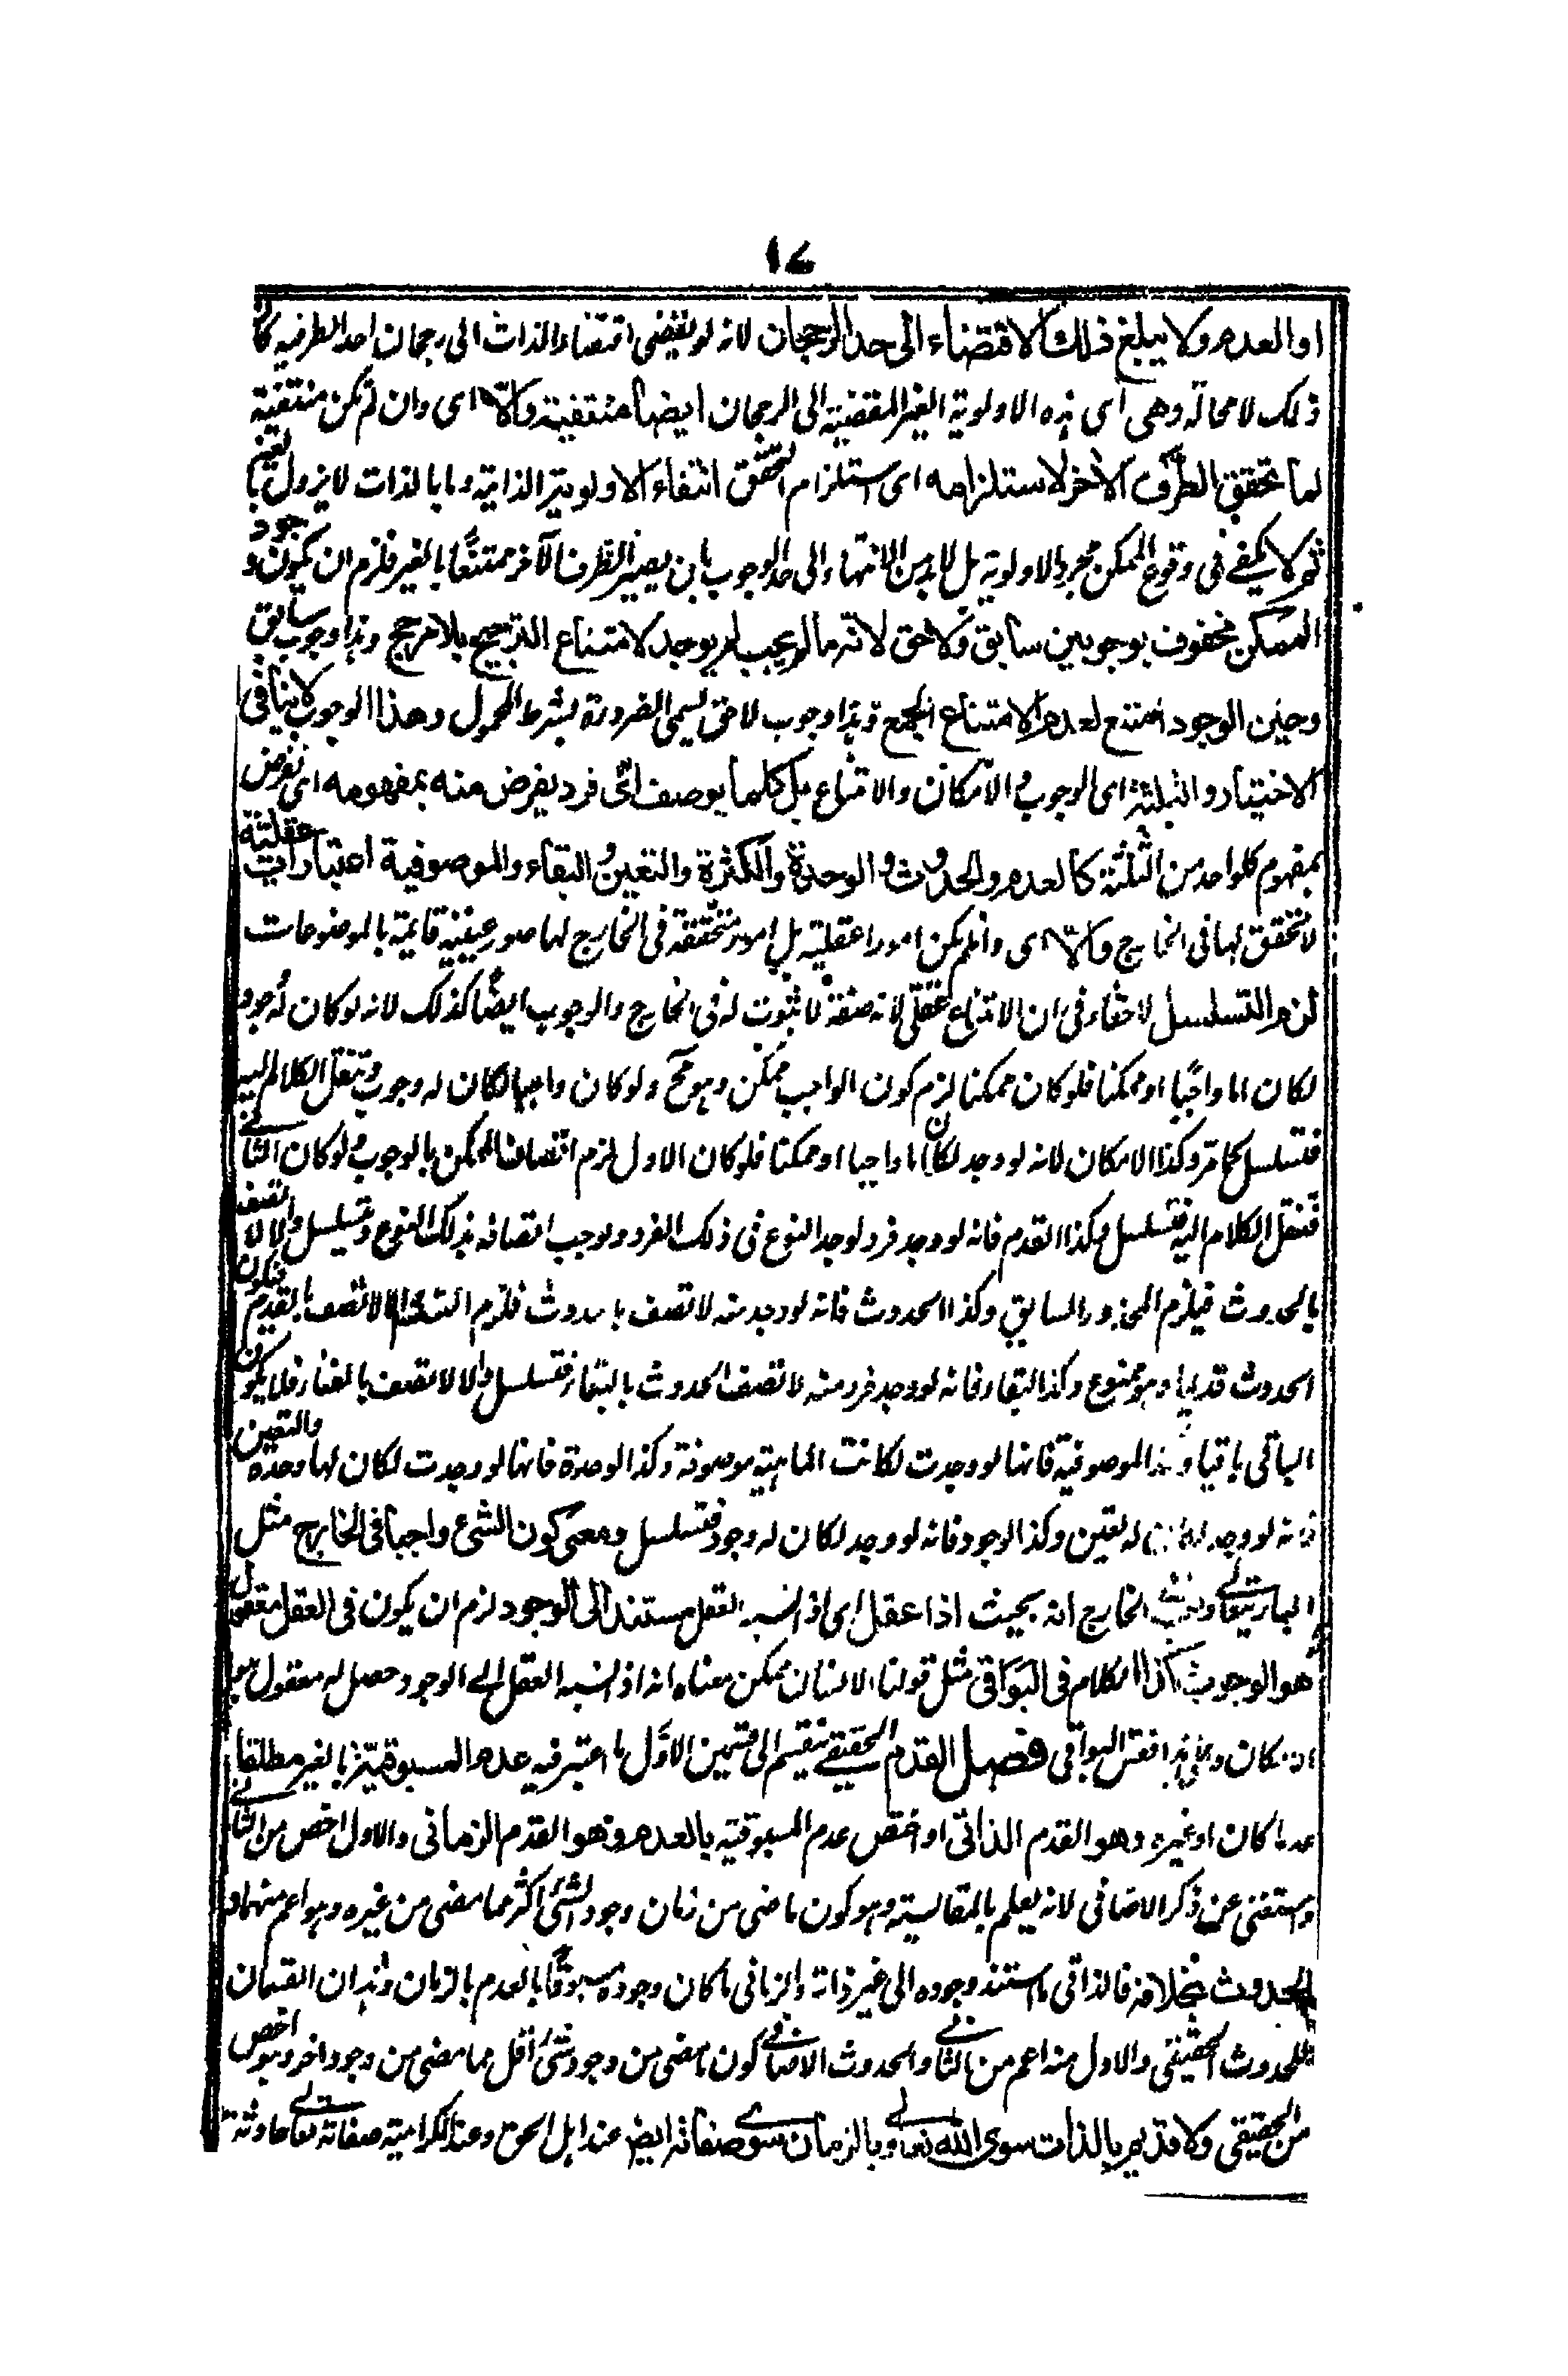 ١٧
او العدم ولا يبلغ ذلك الاقتضاء الى حد الرجحان لانه لو يفضى اقتضاء الذات الى رجحان احد الطرفيه كان
ذلك لا محالة وهى اى هذه الاولوية الغير المفضية الى الرجحان ايضا منتفية والا اى وان لم تكن منتفية
لما تحقق الطرف الاخر لاستلزامه اى استلزام التحقق انتفاء الاولوية الذاتية وما بالذات لا يزول بالغير
ثم لا يكفى فى وقوع الممكن مجرد الاولوية بل لابد من الانتهاء الى حد الوجوب بان يصير الطرف الآخر ممتنعًا بالغير فلزم ان يكون وجود
الممكن محفوف بوجوبين سابق ولاحق لانه ما لم يجب لم يوجد لامتناع الترجيح بلا مرجح وهذا وجوب سابق
وحين الوجود امتنع لعدم الامتناع الجمع وهذا وجوب لاحق يسمى الضرورة بشرط المحمول وهذا الوجوب لا ينافى
الاختيار و الثلثة اى الوجوب و الامكان والامتناع بل كلما يوصف اى فرد يفرض منه بمفهومه اى يفرض
بمفهوم كلواحد من الثلثة كالعدم والحدوث و الوحدة والكثرة والتعين والبقاء والموصوفية اعتبارات عقلية
لا تحقق لها فى الخارج والا اى وان لم يكن امورا عقلية بل امور متحققة فى الخارج لها صور عينية قائمة بالموضوعات
لزم التسلسل لا خفاء فى ان الامتناع عقلى لانه صفة لا ثبوت له فى الخارج والوجوب ايضًا كذلك لانه لو كان له وجود
لكان اما واجبًا او ممكنا فلو كان ممكنا لزم كون الواجب ممكن وهو مح ولو كان واجبا لكان له وجوب وننقل الكلام اليه
فتسلسل كما مر وكذا الامكان لانه لو وجد لكان اما واجبا او ممكنا فلو كان الاول لزم اتصاف الممكن بالوجوب ولو كان الثانى
فننقل الكلام اليه فتسلسل وكذا القدم فانه لو وجد فرد لوجد النوع فى ذلك الفرد و وجب اتصافه بذلك النوع وتسلسل والا لا تصف
بالحدوث فيلزم المحذور السابق وكذا الحدوث فانه لو وجد منه لا تصف بالحدوث فلزم التسلسل والا لا تصف بالقدم فيكون
الحدوث قديما وهو ممنوع وكذا البقاء فانه لو وجد فرد منه لا تصف الحدوث بالبقاء فتسلسل والا لا تصف بالفناء فلا يكون
الباقى باقيا و كذا الموصوفية فانها لو وجدت لكانت الماهية موصوفة وكذا الوحدة فانها لو وجدت لكان لها وحدة والتعين
فانه لو وجد لكان له تعين وكذا الوجود فانه لو وجد لكان له وجود فتسلسل ومعنى كون الشئ واجبا فى الخارج مثل
البارى تعالى الخارج انه بحيث اذا عقل اى اذا نسبه العقل مستندا الى الوجود لزم ان يكون فى العقل معقول
هو الوجوب كذا الكلام فى البواقى مثل قولنا الانسان ممكن معناه انه اذا نسبه العقل الى الوجود حصل له معقول هو
الامكان وعلى هذا فقس البواقى فصل القدم الحقيقى ينقسم الى قسمين الاول ما اعتبر فيه عدم المسبوقية بالغير مطلقا
عدما كان او غيره وهو القدم الذاتى او اختص عدم المسبوقية بالعدم وهو القدم الزمانى والاول اخص من الثانى
واستغنى عن ذكر الاضافى لانه يعلم بالمقايسة وهو كون ما مضى من زمان وجود الشئ اكثر مما مضى من غيره وهو اعم منهما و
الحدوث بخلافه فالذاتى ما استند وجوده الى غير ذاته والزمانى ما كان وجوده مسبوقًا بالعدم بالزمان وهذان القسمان
للحدوث الحقيقى والاول منه اعم من الثانى والحدوث الاضافى كون ما مضى من وجود شئ اقل مما مضى من وجود اخر وهو اخص
من الحقيقى ولا قديم بالذات سوى الله تعالى وبالزمان سوى صفاته ايضا عند اهل الحق وعند الكرامية صفاته تعالى حادثة